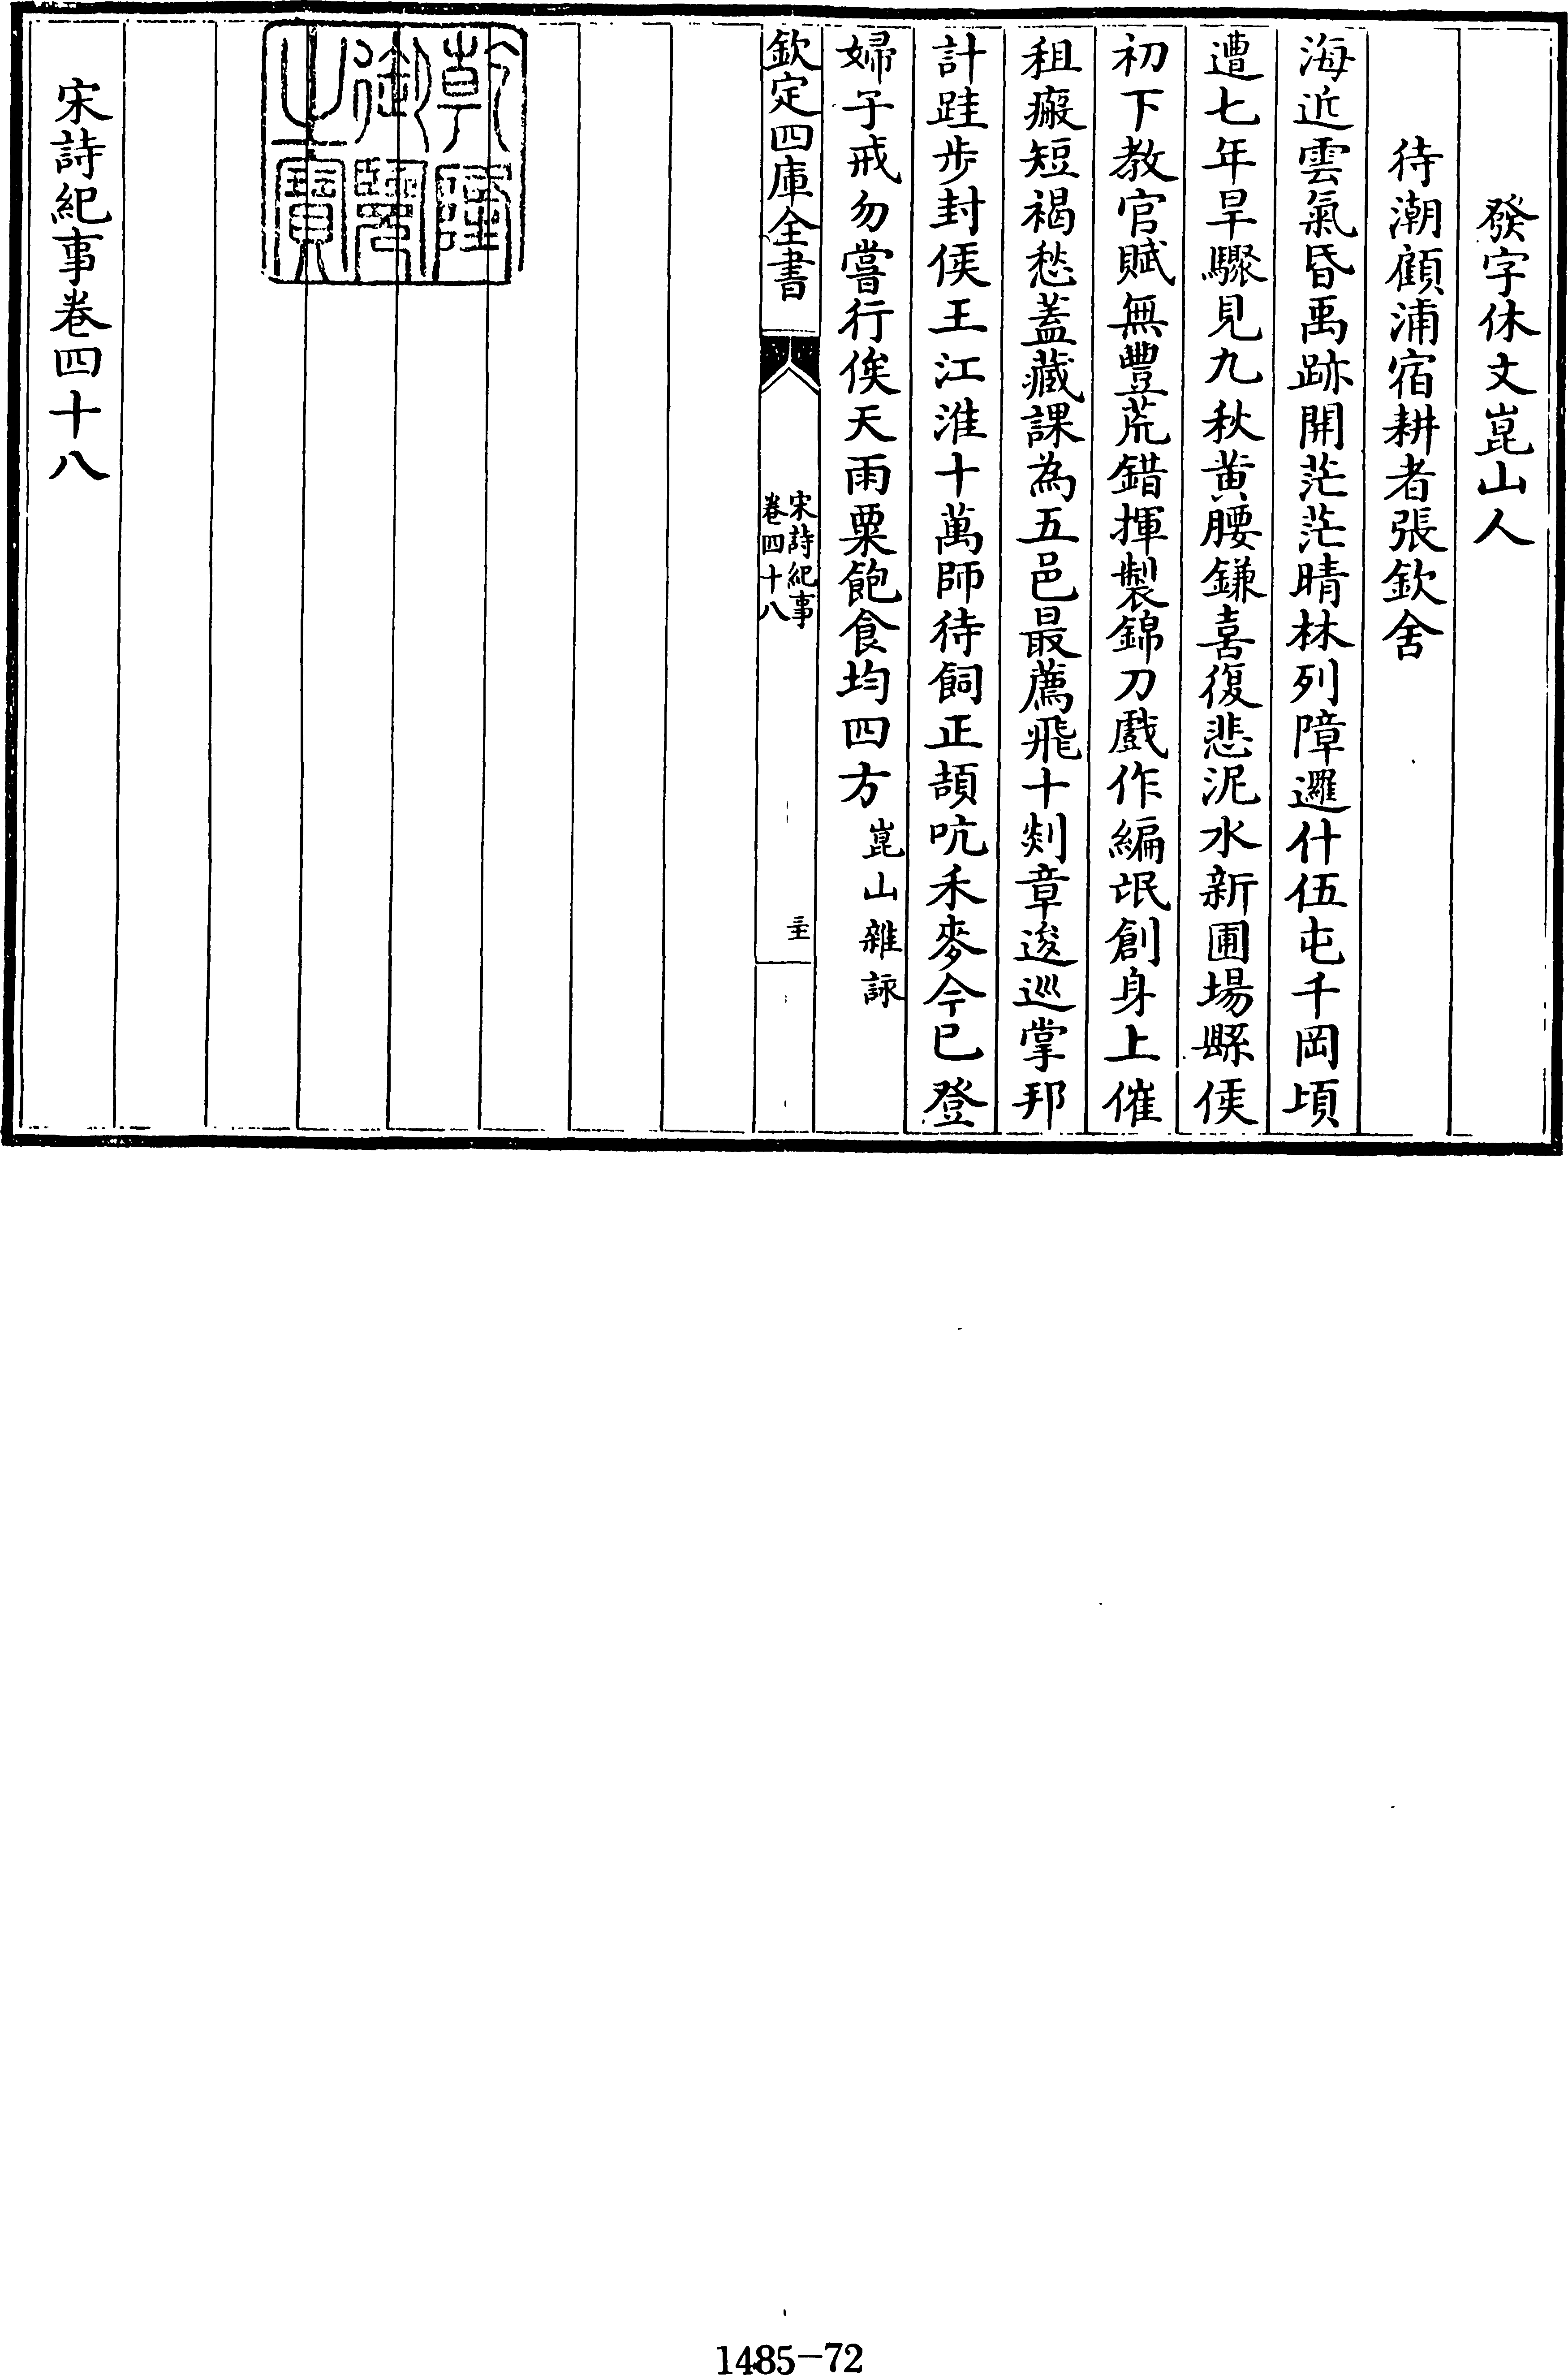 發字休文崑山人
待潮顧浦宿耕者張欽舍
海近雲氣昏禹跡開茫茫晴林列障邏什伍屯千岡頃
遭七年旱驟見九秋黄腰鎌喜復悲泥水新圃場縣侯
初下教官賦無豐荒錯揮製錦刀戲作編氓創身上催
租瘢短褐愁蓋藏課為五邑最薦飛十剡章逡巡掌邦
計跬步封侯王江淮十萬師待飼正頡吭禾麥今已登
婦子戒勿嘗行俟天雨粟飽食均四方崑山雜詠
欽定四庫全書
宋詩紀事
卷四十八
乾隆御覽之寶
宋詩紀事卷四十八
1485-72